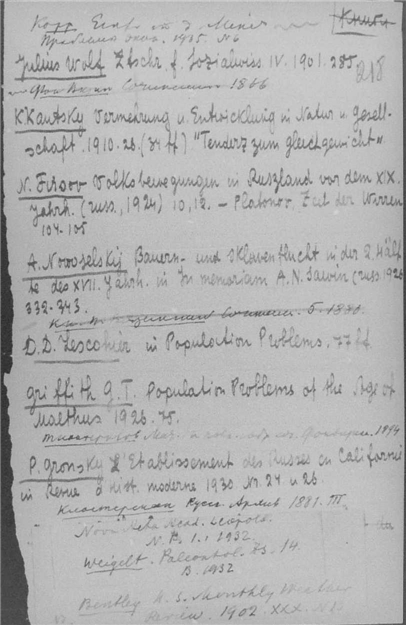 Книги
Проблемы экон. 1935. №6
Julius Wolf Ztschr. f. Sozialwiss IV. 1901. 285
218
1886
K. Kautsky Vermehrung u. Entwicklung in Natur u. Gesell-
schaft. 1910. 28. (34 ff) "Tendenz zum Gleichgewicht"
N. Firsov Volksbewegungen in Ruszland vor dem XIX.
Jahrh. (russ., 1924) 10, 12. – Platonov. Zeit der Wirren
104-105
A. Novoselskij Bauern- und Sklavenflucht in der 2. Hälf-
te des XVII. Jahrh. in In memoriam A. N. Sawin (russ 1926
332-343.
D. D. Lescohier in Population Problems. 77 ff
Griffith G. T. Population Problems of the Age of
Malthus 1926. 75.
1894
P. Gronsky L'Etablissement des Russes en Californie
in Revue d'hist. moderne 1930. Nr. 24 u. 26.
Русс. Архив 1881. III.
Nova Acta Acad. Leopold.
N. F. 1. 1 1932.
Weigelt. Palaeontol. Zs. 14.
B. 1932
Bentley U. S. Monthly Weather
Review. 1902. XXX.